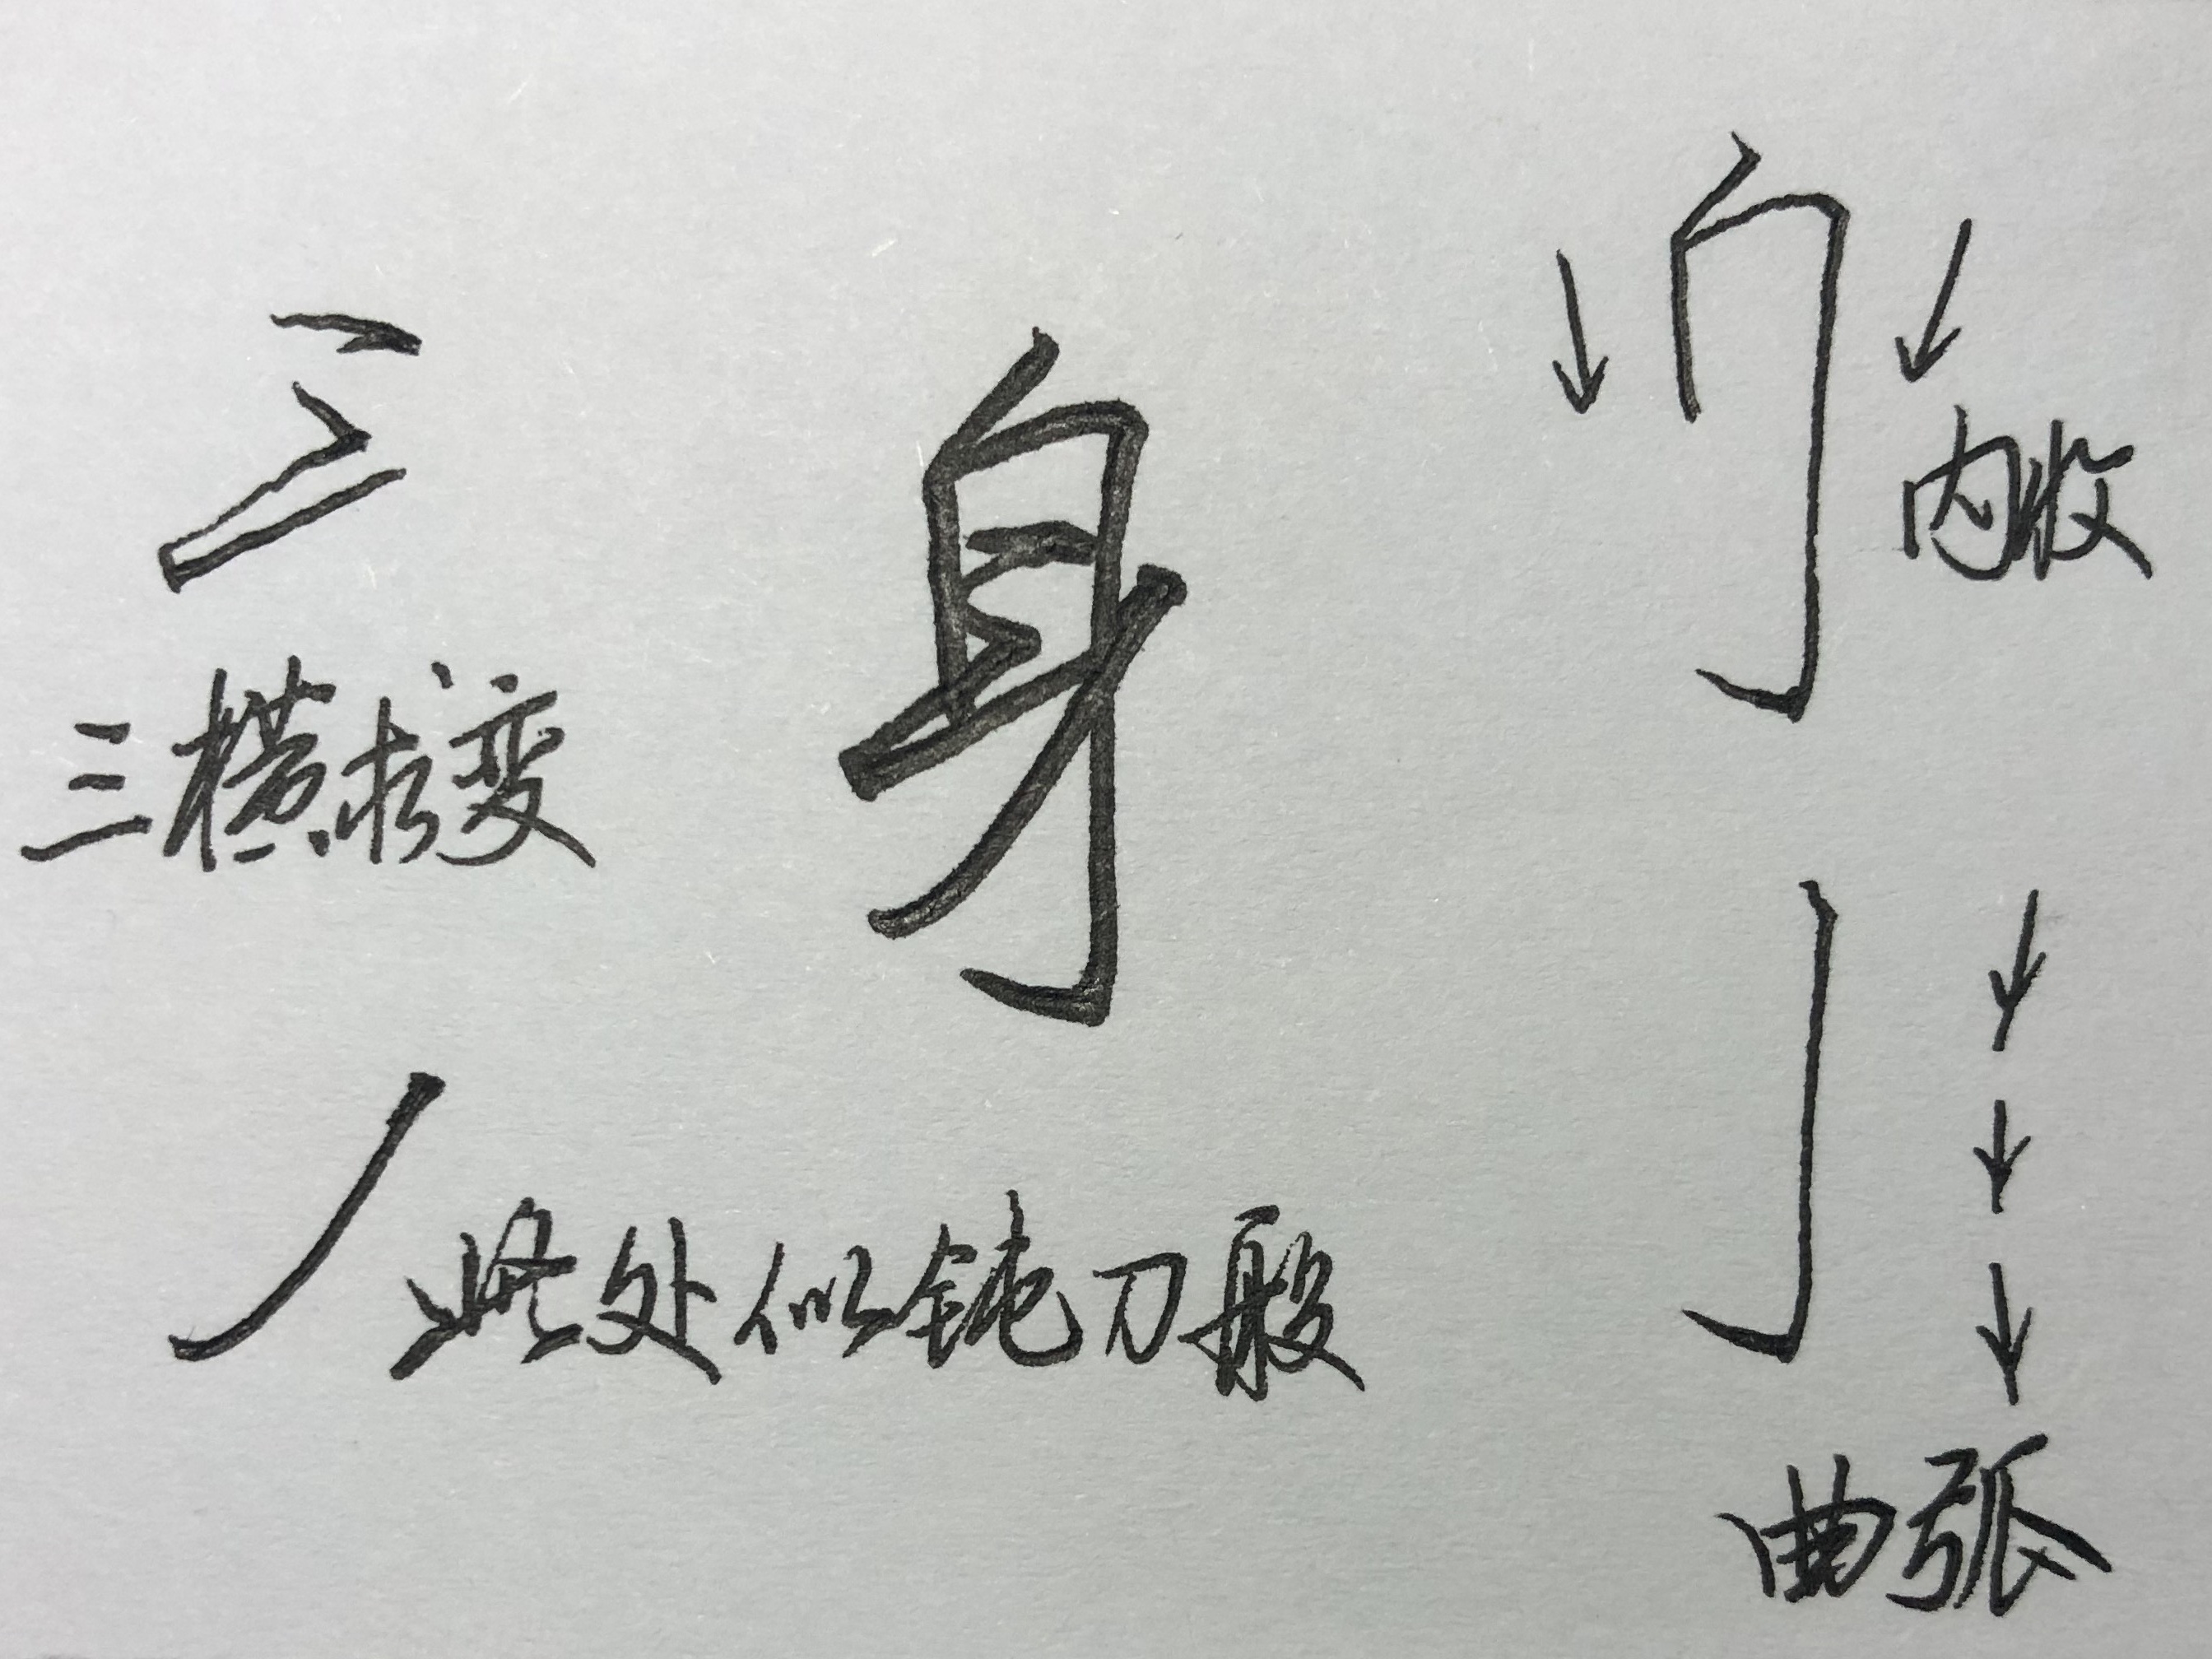 身
内收
三横求变
此处似钝刀般
曲弧